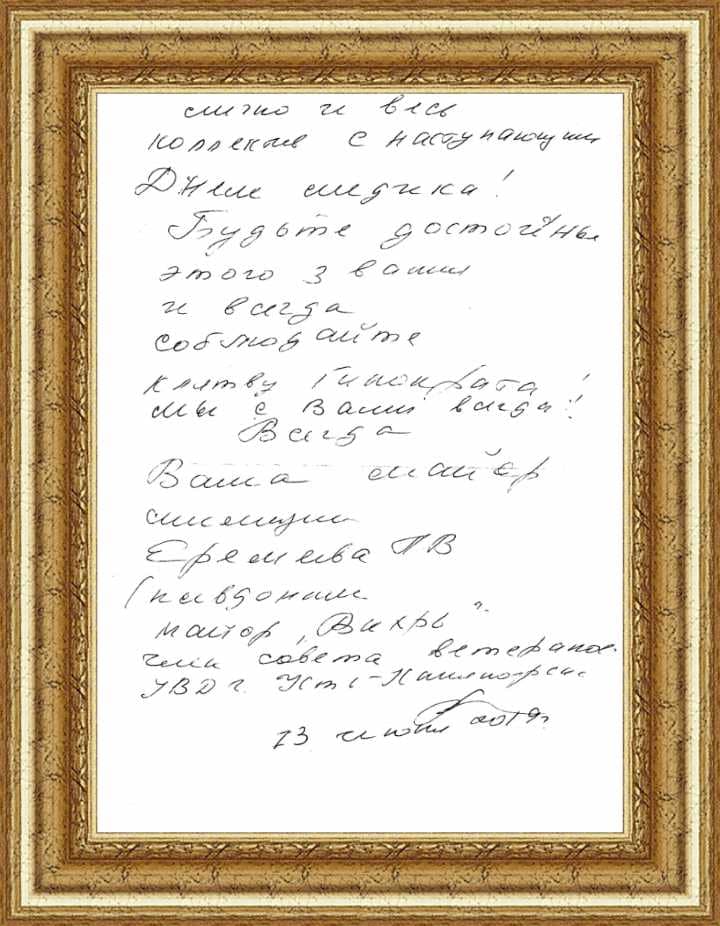 лично и весь
коллектив с наступающим
Днем медика!
Будьте достойны
этого звания
и всегда
соблюдайте
клятву Гиппократа!
мы с Вами всегда!
Всегда
Ваша майор
милиции
Еремеева ПВ
(псевдоним
майор „Вихрь".
член совета ветеранов
УВД г. Усть-Каменогорск
13 июня 2019г